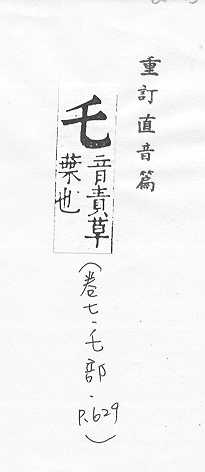 重訂直音篇
乇
音責草
葉也
(卷七·乇部·P.629)